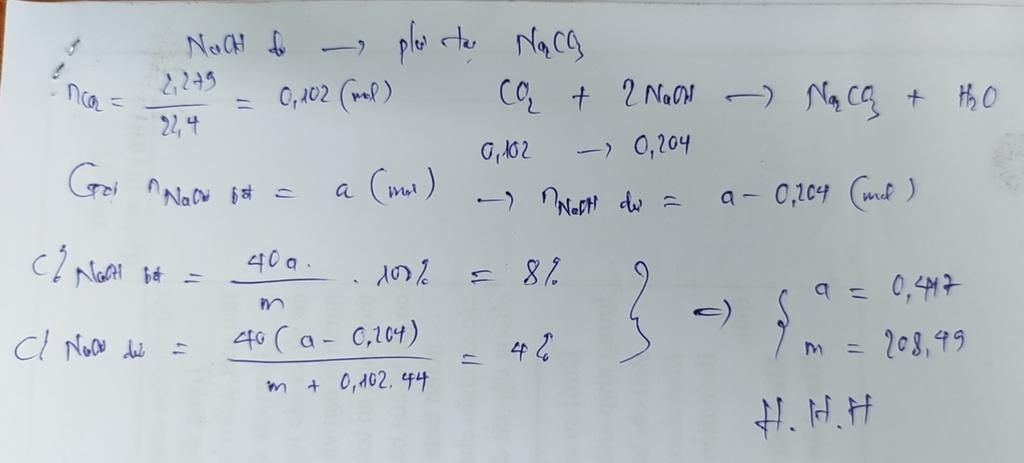 NaOH dư → pứ tạo Na2CO3
nCO2 = 2,279 / 22,4 = 0,102 (mol) CO2 + 2NaOH → Na2CO3 + H2O
0,102 → 0,204
Gọi nNaOH bđ = a (mol) → nNaOH dư = a - 0,204 (mol)
C% NaOH bđ = 40a / m . 100% = 8%
C% NaOH dư = 40(a - 0,204) / m + 0,102.44 = 4%
} => { a = 0,417
m = 208,49
H.H.H